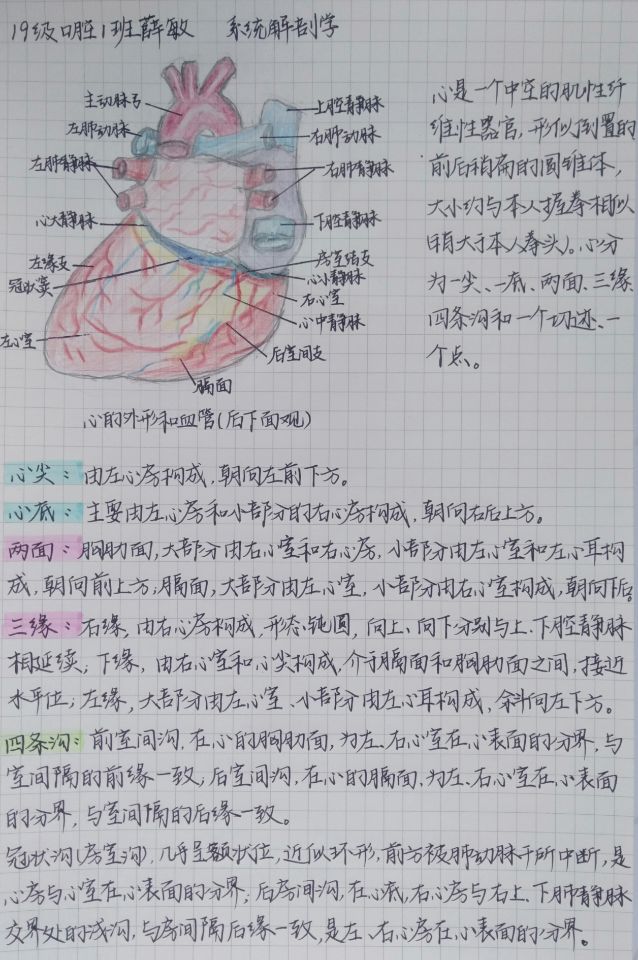 19级口腔1班薛敏 系统解剖学
主动脉弓
左肺动脉
左肺静脉
心大静脉
左缘支
冠状窦
左心室
上腔静脉
右肺动脉
右肺静脉
下腔静脉
房室结支
心小静脉
右心室
心中静脉
后室间支
膈面
心的外形和血管(后下面观)
心是一个中空的肌性纤
维性器官,形似倒置的
前后稍扁的圆锥体,
大小约与本人握拳相似
(稍大于本人拳头)。心分
为一尖、一底、两面、三缘、
四条沟和一个切迹、一
个点。
心尖:由左心房构成,朝向左前下方。
心底:主要由左心房和小部分的右心房构成,朝向右后上方。
两面:胸肋面,大部分由右心室和右心房,小部分由左心室和左心耳构
成,朝向前上方;膈面,大部分由左心室,小部分由右心室构成,朝向下后。
三缘:右缘,由右心房构成,形态钝圆,向上、向下分别与上、下腔静脉
相延续;下缘,由右心室和心尖构成,介于膈面和胸肋面之间,接近
水平位;左缘,大部分由左心室、小部分由左心耳构成,斜向左下方。
四条沟:前室间沟,在心的胸肋面,为左、右心室在心表面的分界,与
室间隔的前缘一致;后室间沟,在心的膈面,为左、右心室在心表面
的分界,与室间隔的后缘一致。
冠状沟(房室沟),几乎呈额状位,近似环形,前方被肺动脉干所中断,是
心房与心室在心表面的分界;后房间沟,在心底,右心房与右上、下肺静脉
交界处的浅沟,与房间隔后缘一致,是左、右心房在心表面的分界。